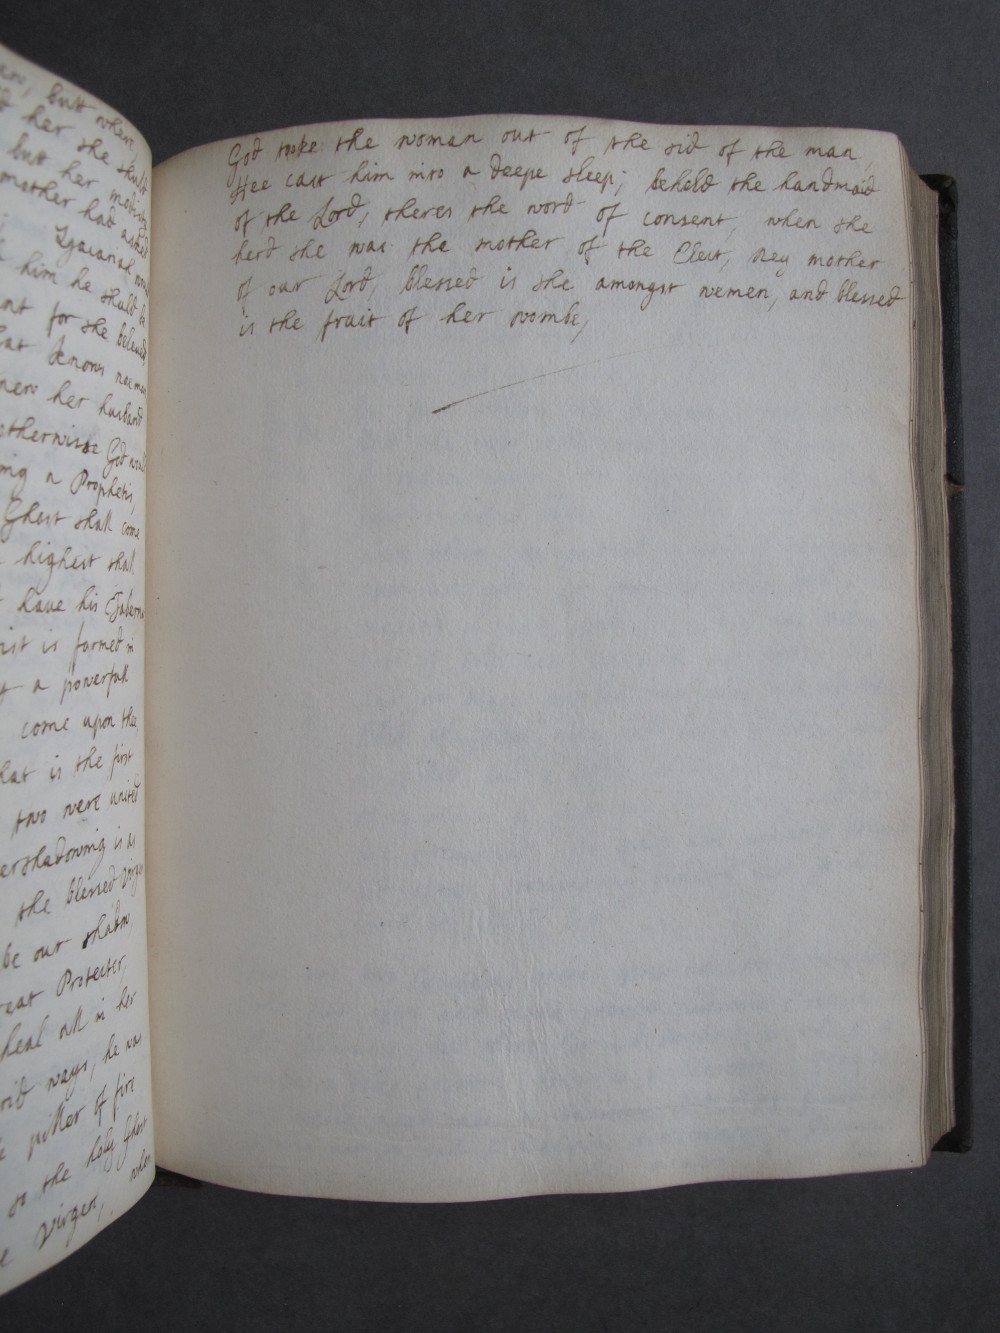 but when
her she shall
but her modesty
mother had asked
Zacariah
him he shuld be
for she beleued
knew her husband
otherwisse God would
a Prophetis,
Ghost shall come
highest shall
haue his Taberna
is formed in
a powerfull
come upon thee,
is the first
two were united
ershadowing is as
the blessed Virgen
be our shadow,
Protecter,
heal all in her
ways, he was
piller of fire
so the holy Ghost
Virgen, when
God tooke the woman out of the sid of the man,
Hee cast him into a deepe sleep; behold the handmaid
of the Lord, theres the word of consent, when she
herd she was the mother of the Elect, Ney mother
of our Lord, blessed is she amongst wemen, and blessed
is the fruit of her wombe,